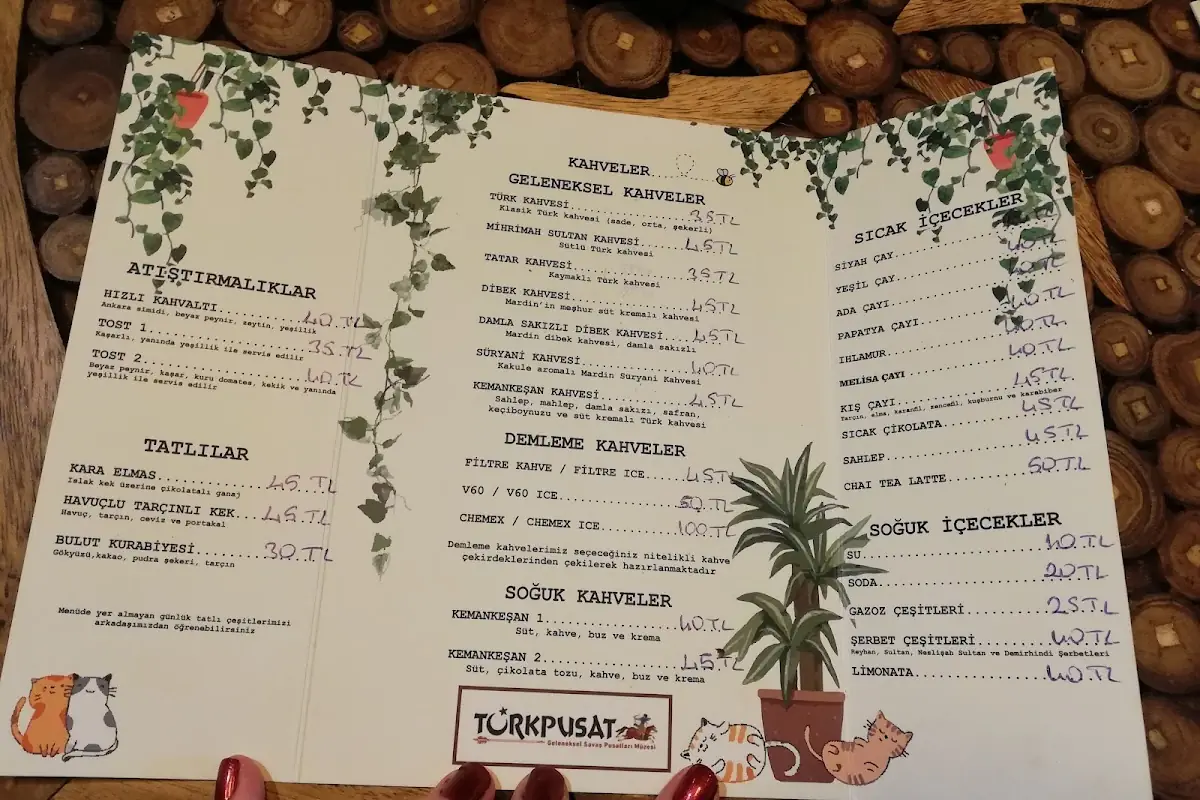 ATIŞTIRMALIKLAR
HIZLI KAHVALTI..........40.TL
Ankara simidi, beyaz peynir, zeytin, yeşillik
TOST 1..........35.TL
Kaşarlı, yanında yeşillik ile servis edilir
TOST 2..........40.TL
Beyaz peynir, kaşar, kuru domates, kekik ve yanında
yeşillik ile servis edilir
TATLILAR
KARA ELMAS..........45.TL
Islak kek üzerine çikolatalı ganaj
HAVUÇLU TARÇINLI KEK...45.TL
Havuç, tarçın, ceviz ve portakal
BULUT KURABİYESİ.......30.TL
Gökyüzü,kakao, pudra şekeri, tarçın
Menüde yer almayan günlük tatlı çeşitlerimizi
arkadaşımızdan öğrenebilirsiniz
KAHVELER
GELENEKSEL KAHVELER
TÜRK KAHVESİ..........35.TL
Klasik Türk kahvesi (sade, orta, şekerli)
MİHRİMAH SULTAN KAHVESİ......45.TL
Sütlü Türk kahvesi
TATAR KAHVESİ..........35.TL
Kaymaklı Türk kahvesi
DİBEK KAHVESİ..........45.TL
Mardin'in meşhur süt kremalı kahvesi
DAMLA SAKIZLI DİBEK KAHVESİ....45.TL
Mardin dibek kahvesi, damla sakızlı
SÜRYANİ KAHVESİ..........40.TL
Kakule aromalı Mardin Süryani Kahvesi
KEMANKEŞAN KAHVESİ..........45.TL
Sahlep, mahlep, damla sakızı, safran,
keçiboynuzu ve süt kremalı Türk kahvesi
DEMLEME KAHVELER
FİLTRE KAHVE / FİLTRE ICE....45.TL
V60 / V60 ICE..........50.TL
CHEMEX / CHEMEX ICE..........100.TL
Demleme kahvelerimiz seçeceğiniz nitelikli kahve
çekirdeklerinden çekilerek hazırlanmaktadır
SOĞUK KAHVELER
KEMANKEŞAN 1..........40.TL
Süt, kahve, buz ve krema
KEMANKEŞAN 2..........45.TL
Süt, çikolata tozu, kahve, buz ve krema
TÜRKPUSAT
Geleneksel Savaş Pusatları Müzesi
SICAK İÇECEKLER
SİYAH ÇAY..........
YEŞİL ÇAY..........40.TL
ADA ÇAYI..........40.TL
PAPATYA ÇAYI..........40.TL
IHLAMUR..........40.TL
MELİSA ÇAYI..........40.TL
KIŞ ÇAYI..........45.TL
Tarçın, elma, karanfil, zencefil, kuşburnu ve karabiber
SICAK ÇİKOLATA..........45.TL
SAHLEP..........45.TL
CHAI TEA LATTE..........50.TL
SOĞUK İÇECEKLER
SU..........10.TL
SODA..........20.TL
GAZOZ ÇEŞİTLERİ..........25.TL
ŞERBET ÇEŞİTLERİ..........40.TL
Reyhan, Sultan, Neslişah Sultan ve Demirhindi Şerbetleri
LİMONATA..........40.TL